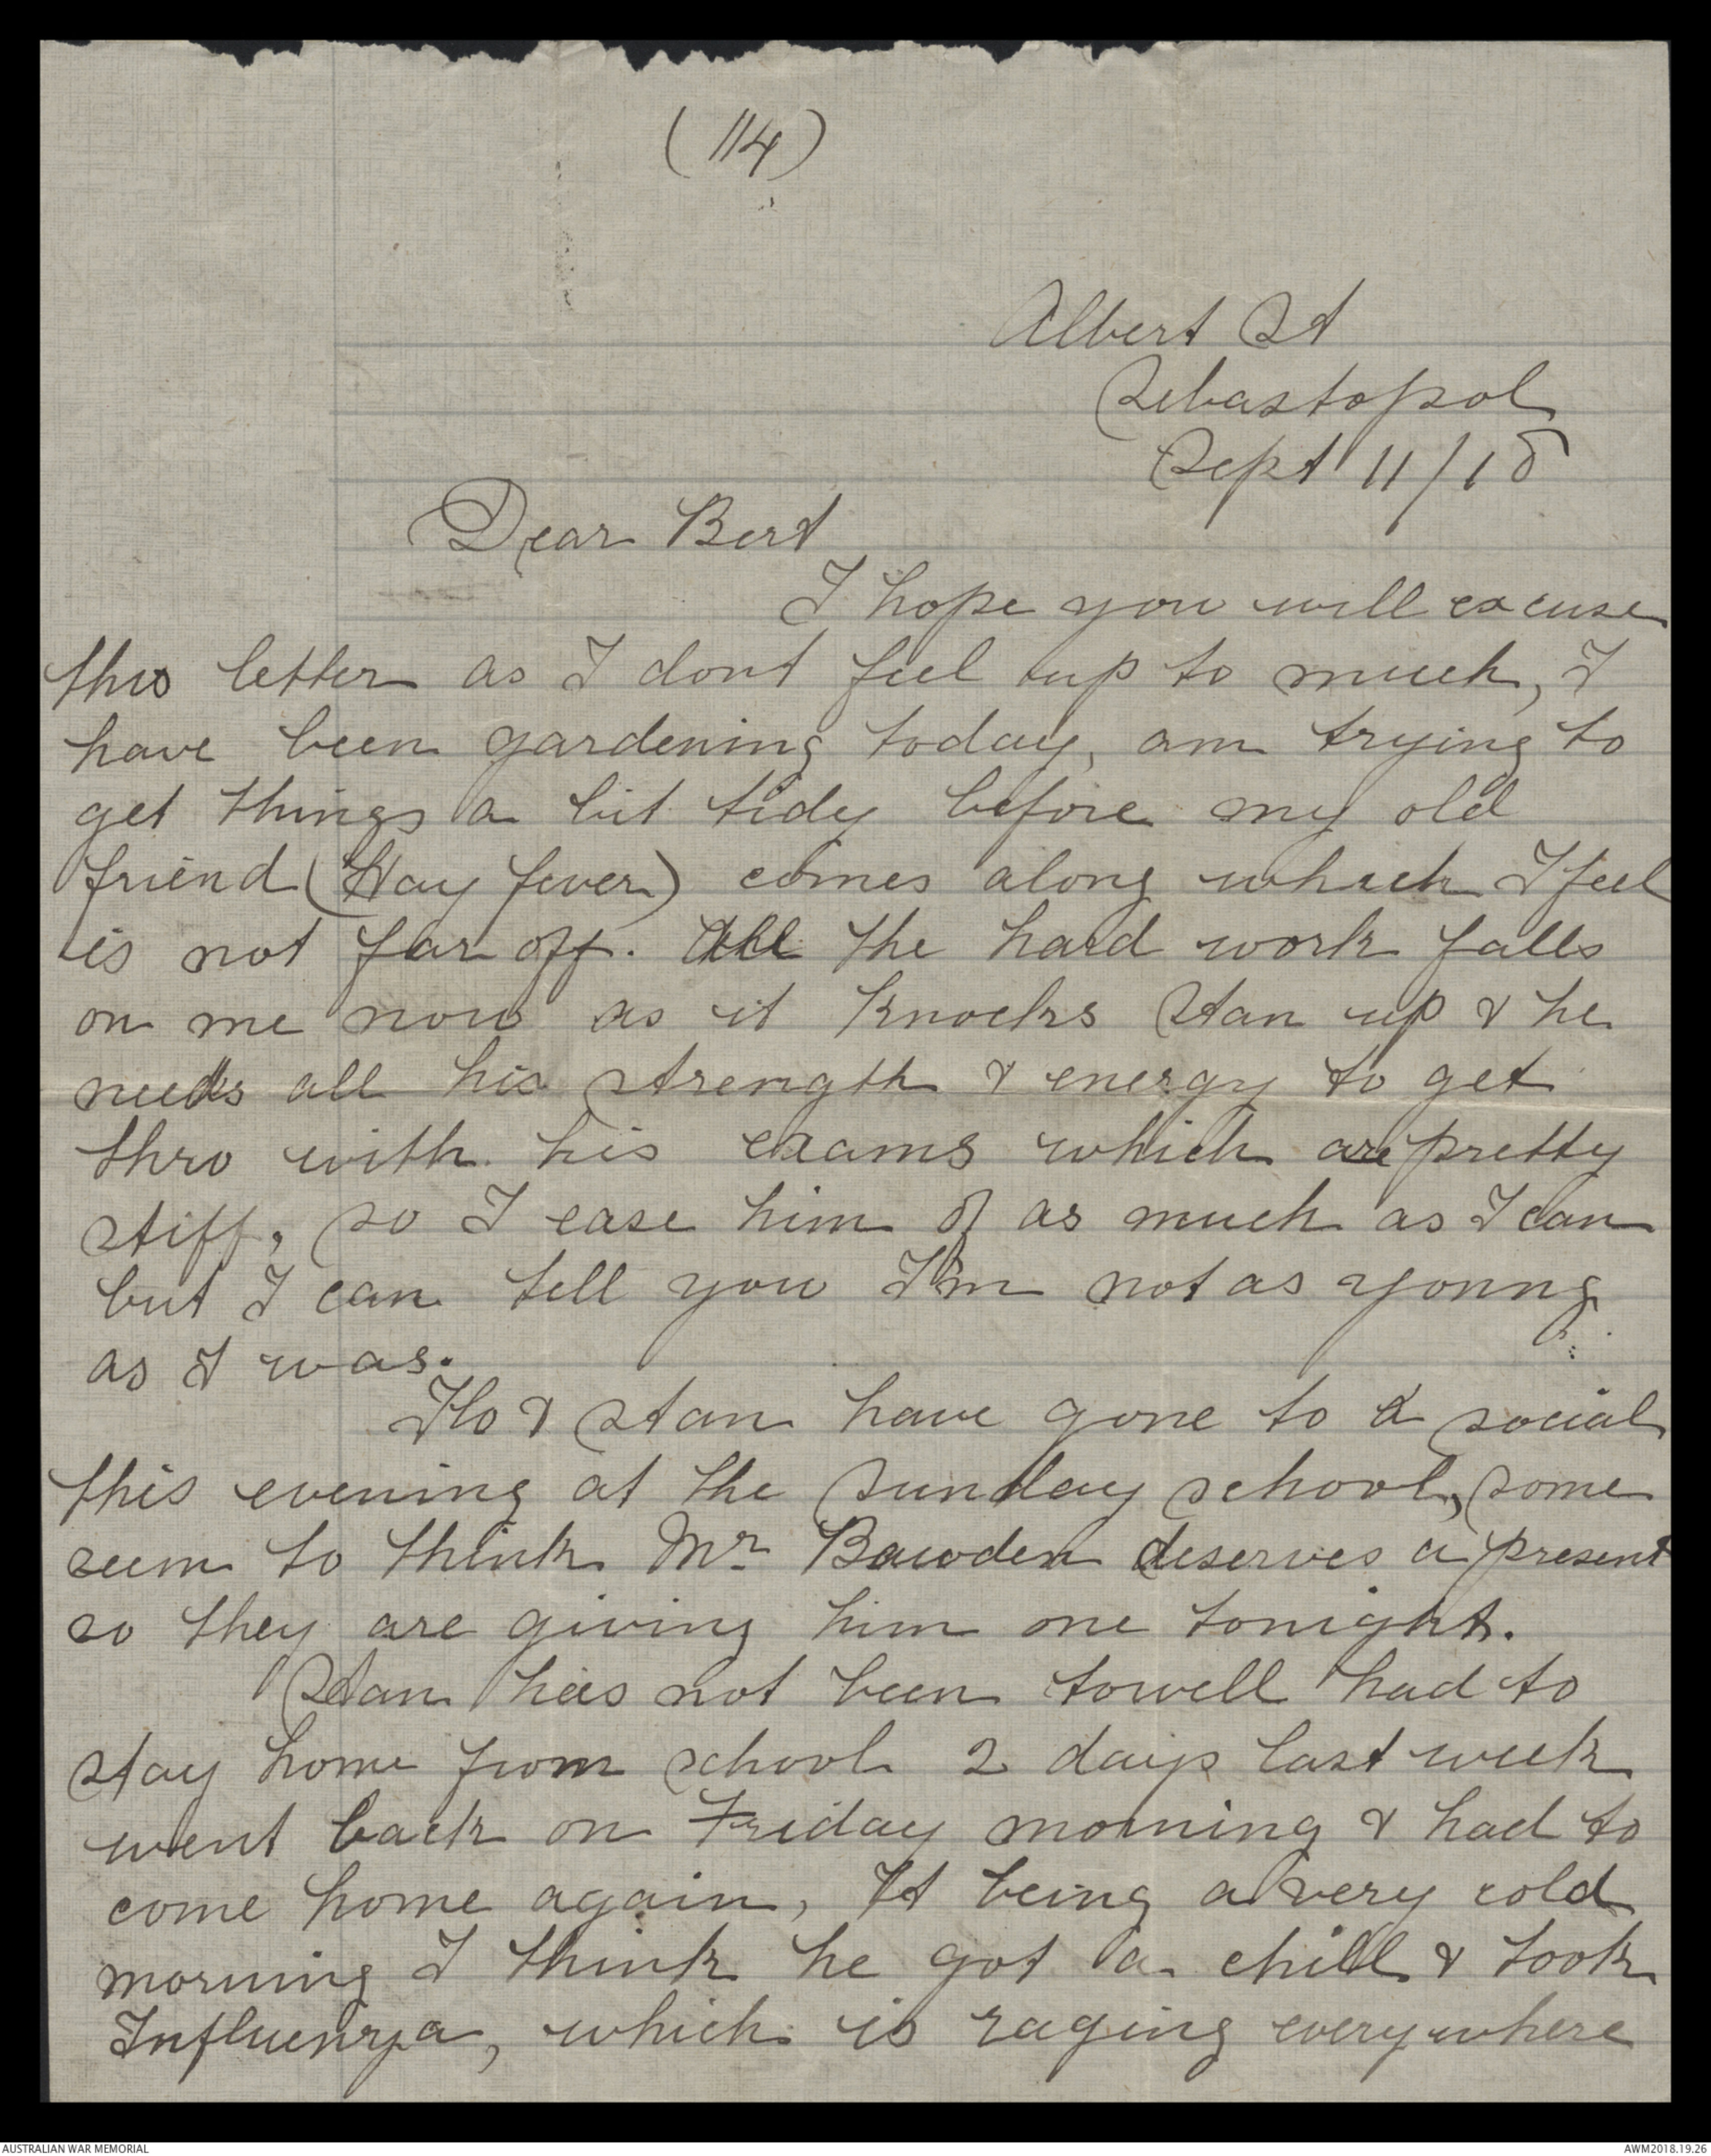 (114)
Albert St
Sebastopol
Sept 11/18
Dear Bert
I hope you will excuse
this letter as I dont feel up to much, I
have been gardening today, am trying to
get things a bit tidy before my old
friend (Hay fever) comes along which I feel
is not far off. All the hard work falls
on me now as it knocks Stan up & he
needs all his strength & energy to get
thro with his exams which are pretty
stiff, so I ease him of as much as I can
but I can tell you I'm not as young
as I was.
Flo & Stan have gone to a social
this evening at the Sunday school, some
seem to think Mr Bawden deserves a present
so they are giving him one tonight.
Stan has not been to well had to
stay home from school 2 days last week
went back on Friday morning & had to
come home again, It being a very cold
morning I think he got a chill & took
Influenza, which is raging everywhere
AUSTRALIAN WAR MEMORIAL
AWM2018.19.26